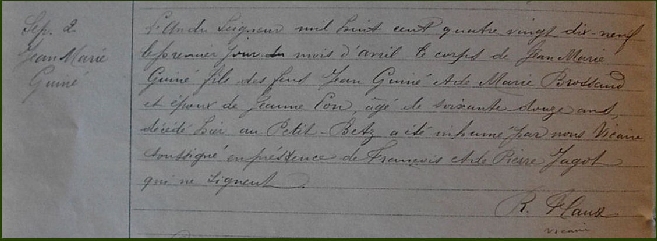 Sep. 2
Jean Marie
Guiné
L'an du Seigneur mil huit cent quatre vingt dix-neuf
le premier jour du mois d'avril le corps de Jean Marie
Guiné fils des feus Jean Guiné et de Marie Brossaud
et époux de Jeanne Lou, âgé de soixante douze ans
décédé hier au Petit-Betz a été inhumé par nous Vicaire
soussigné en présence de François et de Pierre Jagot
qui ne signent.
R.
vicaire